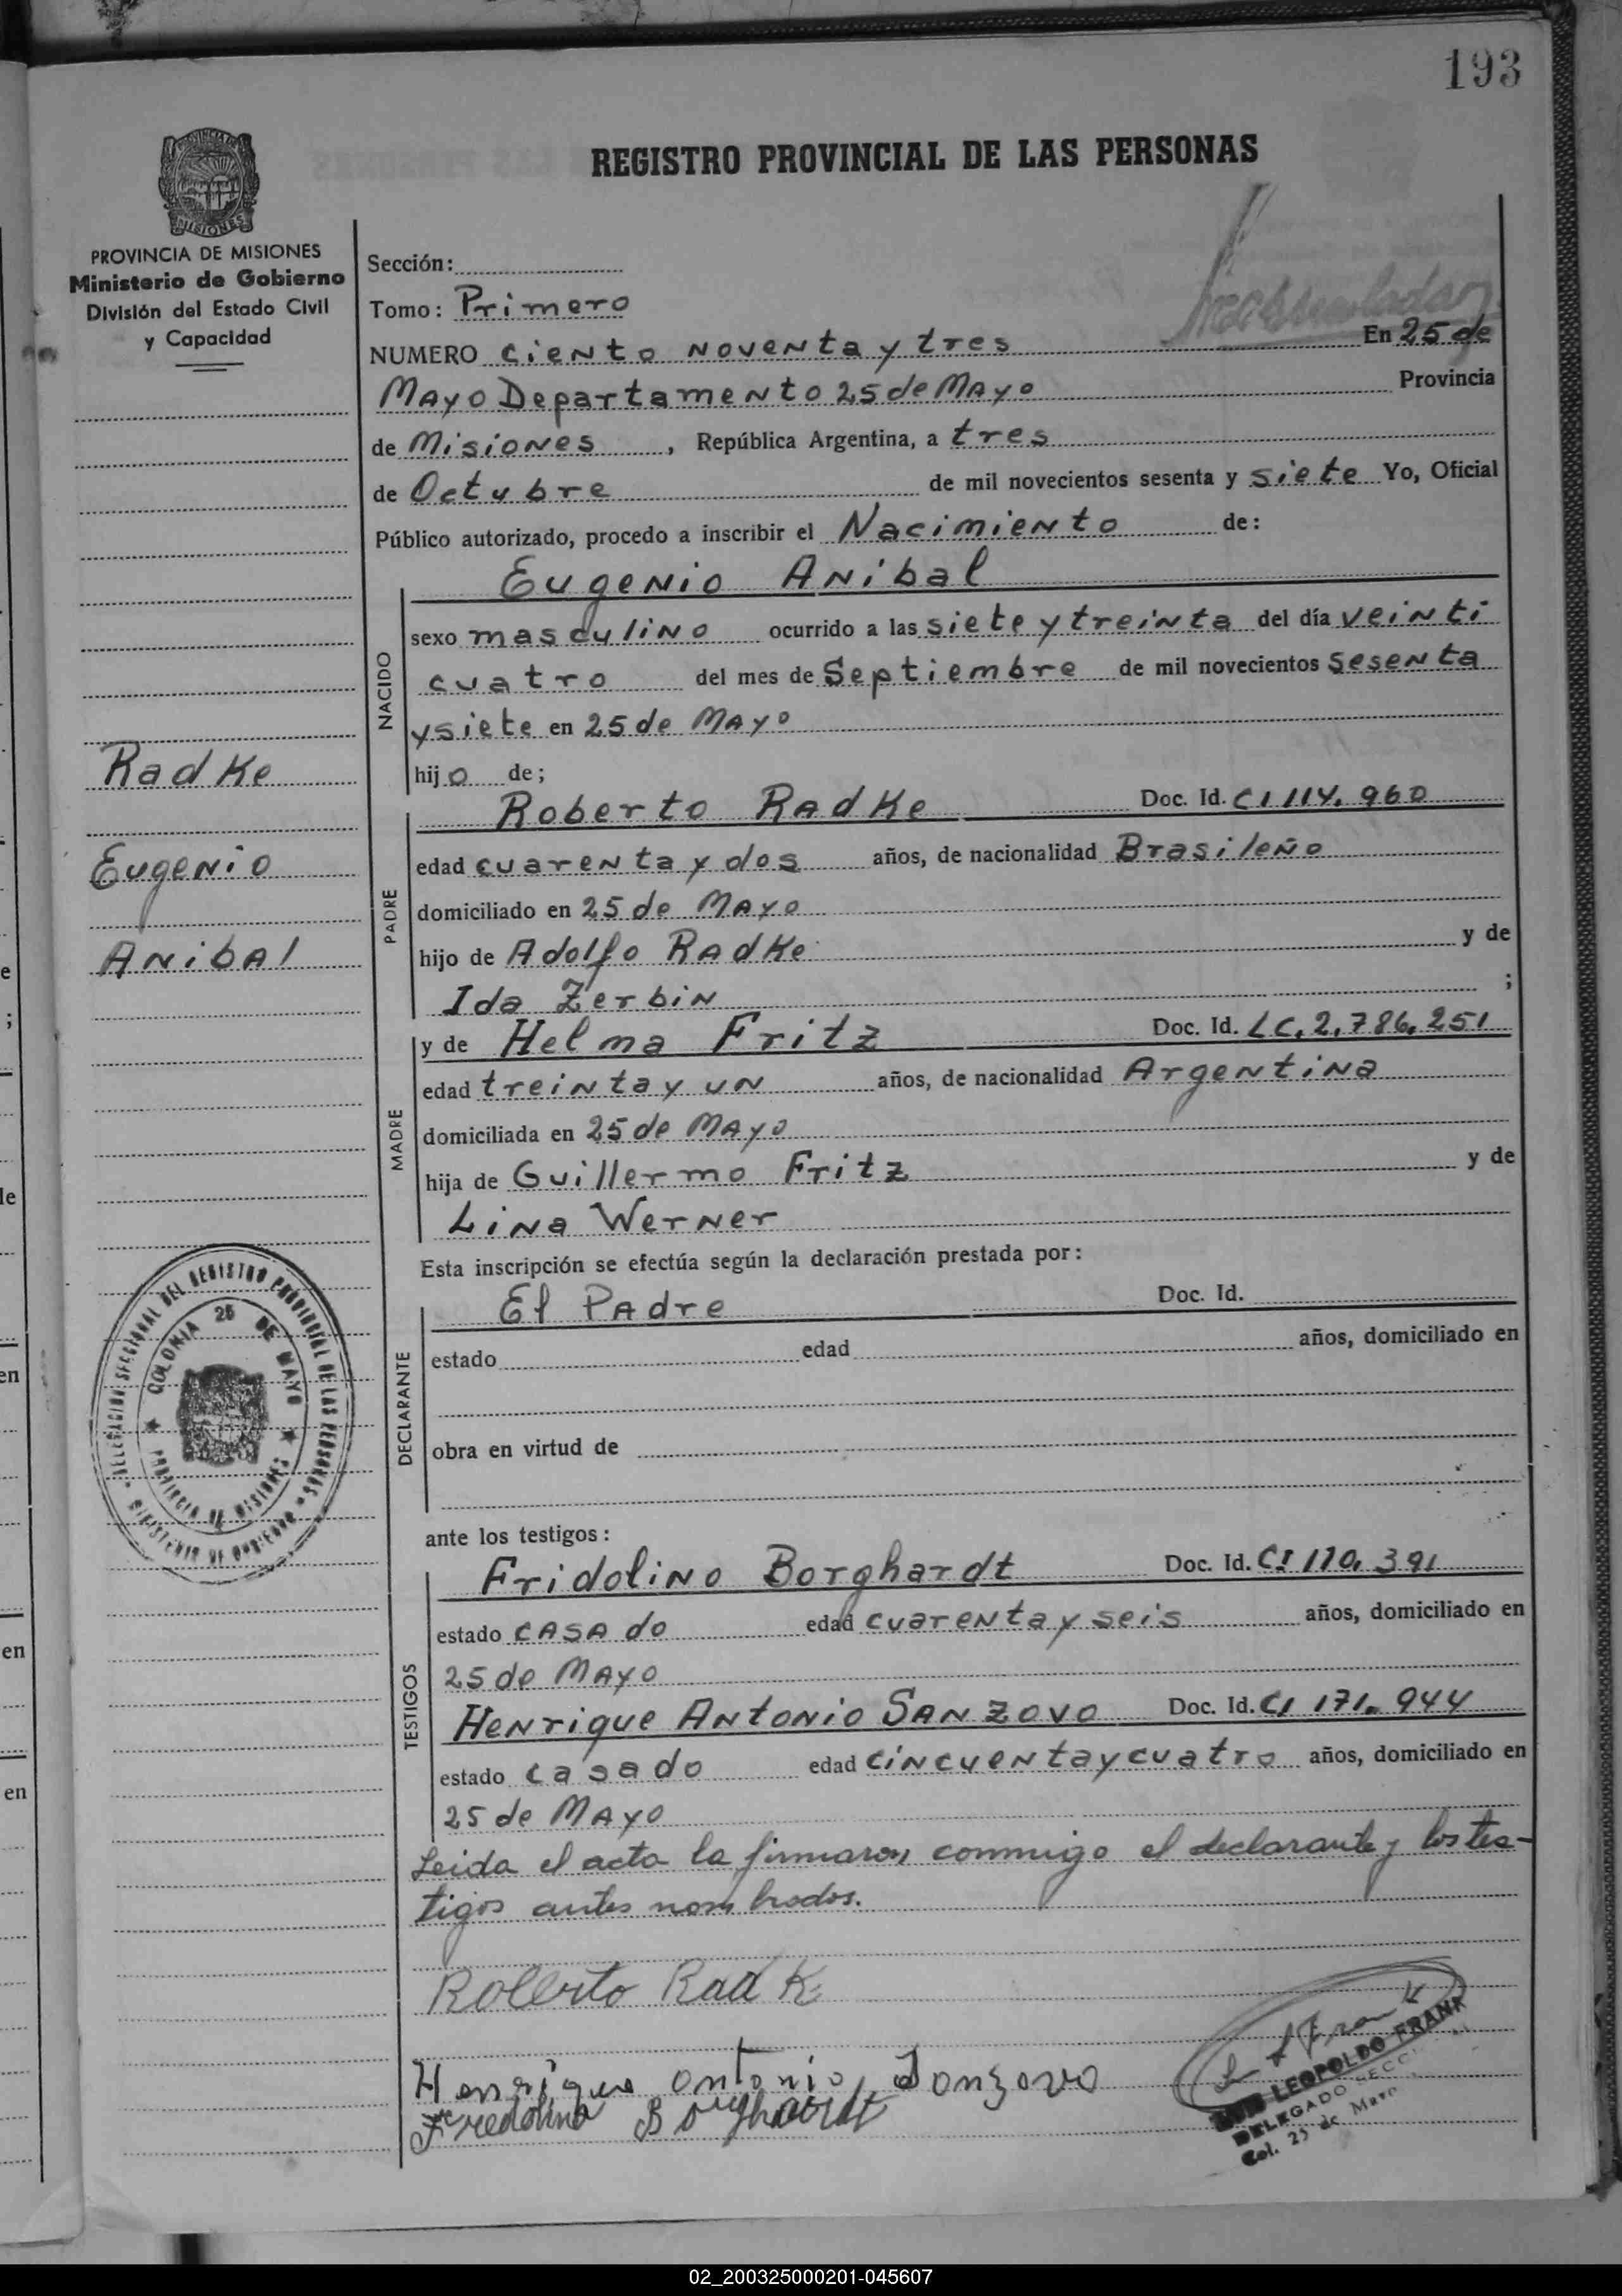 193
REGISTRO PROVINCIAL DE LAS PERSONAS
PROVINCIA DE MISIONES
Ministerio de Gobierno
División del Estado Civil
y Capacidad
Sección:
Tomo: Primero
NUMERO ciento noventa y tres En 25 de
Mayo Departamento 25 de Mayo Provincia
de Misiones, República Argentina, a tres
de Octubre de mil novecientos sesenta y siete Yo, Oficial
Público autorizado, procedo a inscribir el Nacimiento de:
Eugenio Anibal
NACIDO
sexo masculino ocurrido a las siete y treinta del día veinti
cuatro del mes de Septiembre de mil novecientos sesenta
y siete en 25 de Mayo
hijo de;
Radke
Eugenio
Anibal
PADRE
Roberto Radke Doc. Id. CI 114.960
edad cuarenta y dos años, de nacionalidad Brasileño
domiciliado en 25 de Mayo
hijo de Adolfo Radke y de
Ida Zerbin ;
MADRE
y de Helma Fritz Doc. Id. LC.2.786.251
edad treinta y un años, de nacionalidad Argentina
domiciliada en 25 de Mayo
hija de Guillermo Fritz y de
Lina Werner
Esta inscripción se efectúa según la declaración prestada por:
DECLARANTE
El Padre Doc. Id.
estado edad años, domiciliado en
obra en virtud de
DELEGACION SECCIONAL DEL REGISTRO PROVINCIAL DE LAS PERSONAS
MINISTERIO DE GOBIERNO
COLONIA 25 DE MAYO
PROVINCIA DE MISIONES
ante los testigos:
TESTIGOS
Fridolino Borghardt Doc. Id. CI 170.391
estado casado edad cuarenta y seis años, domiciliado en
25 de Mayo
Henrique Antonio Sanzovo Doc. Id. CI 171.944
estado casado edad cincuenta y cuatro años, domiciliado en
25 de Mayo
Leida el acta la firmaron conmigo el declarante y los tes-
tigos antes nombrados.
Roberto Radke
Henrique Antonio Sonzovo
Fredolino Borghardt
L A Frank
LEOPOLDO FRANK
DELEGADO SECC.
Col. 25 de Mayo
02_200325000201-045607